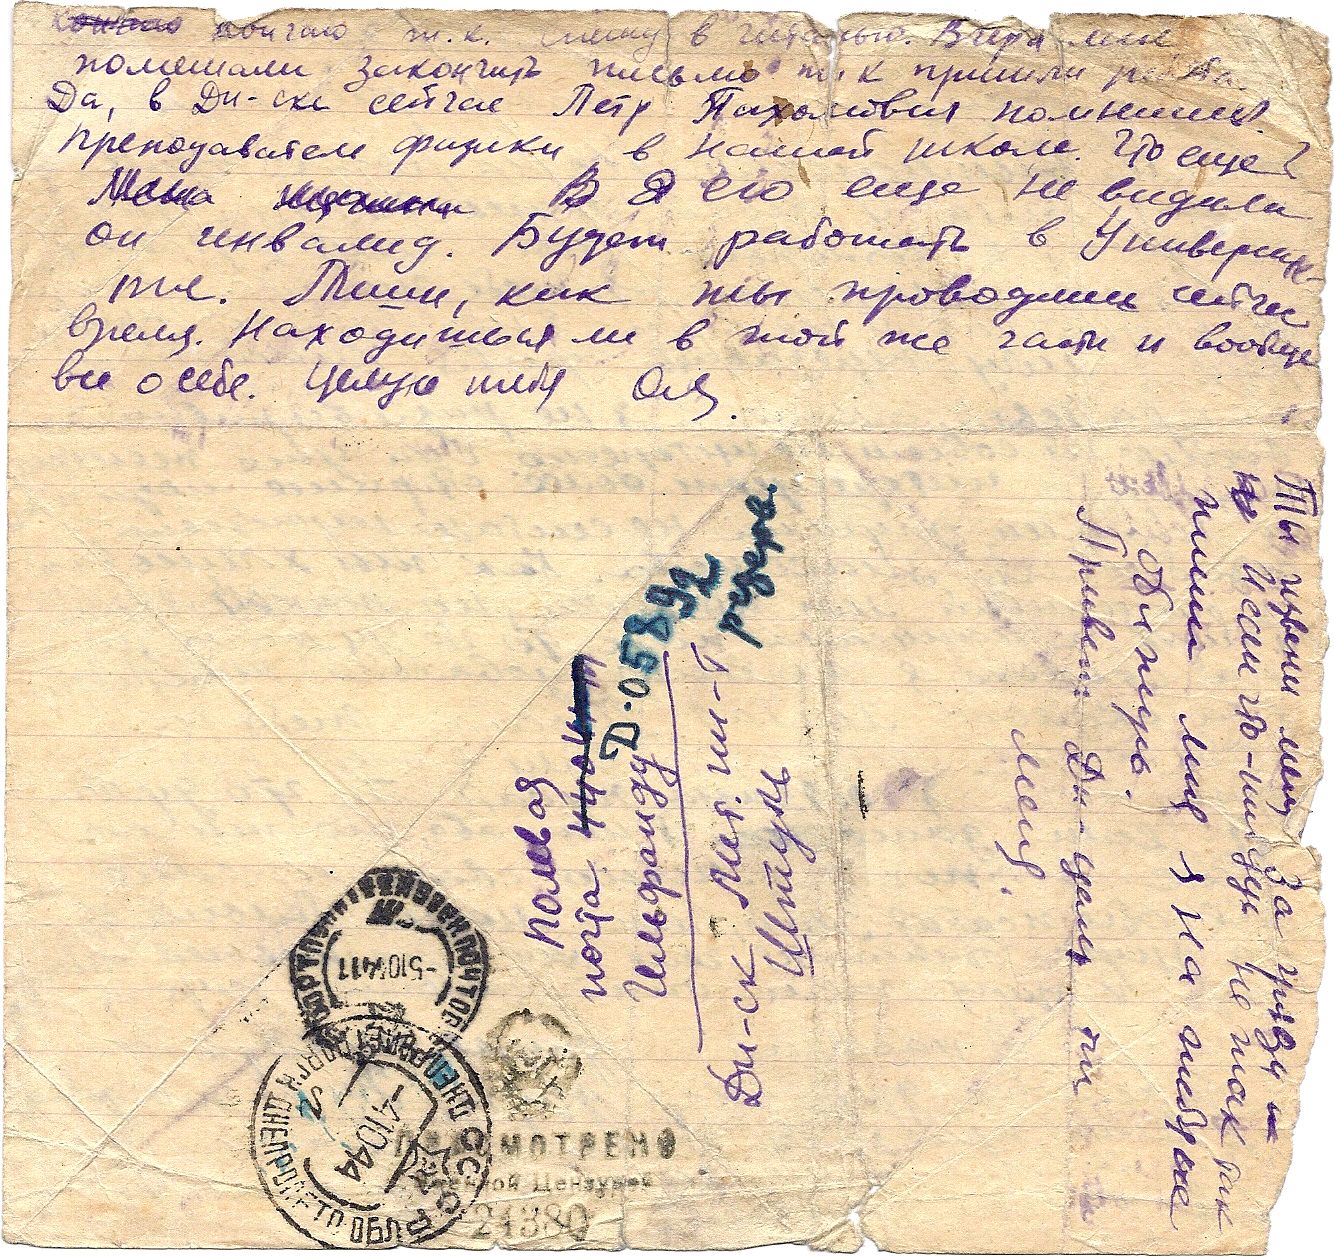 кончаю т.к. спешу в читальню. Вчера мне
помешали закончить письмо т.к пришли
Да, в Дн-ске сейчас Петр Пахомович помнишь
преподаватель физики в нашей школе. Что еще?
В Я его еще не видела
он инвалид. Будет работать в Универси-
тете. Миши, как ты проводишь сейчас
время. Находишься ли в той же части и вообще
все о себе. Целую тебя Оля.
Ты извени меня за грязь и
если что-нибудь не так так
пиши мне я на тебя не
обижусь.
Привет
меня.
Полевая
почта
Д-05892
Ильфанду
Дн-ск Мет. ин-т
Штуль
резерв.
-51044 11
ДНЕПРОПЕТРОВСК ДНЕПРОПЕТР. ОБЛ.
СССР
-41044
ПРОСМОТРЕНО
Военной Цензурой
21380